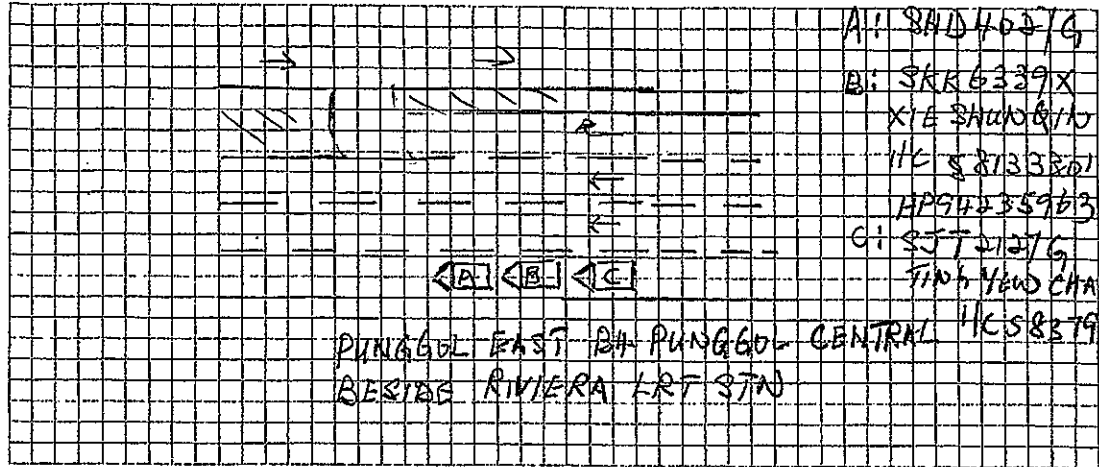 A: SHD4027G
B: SKK6339X
XIE SHUNQIN
I/C S8133301
HP94235963
C: SJT2127G
TING YEW CHA
I/C S8379
A B C
PUNGGOL EAST B4 PUNGGOL CENTRAL
BESIDE RIVIERA LRT STN